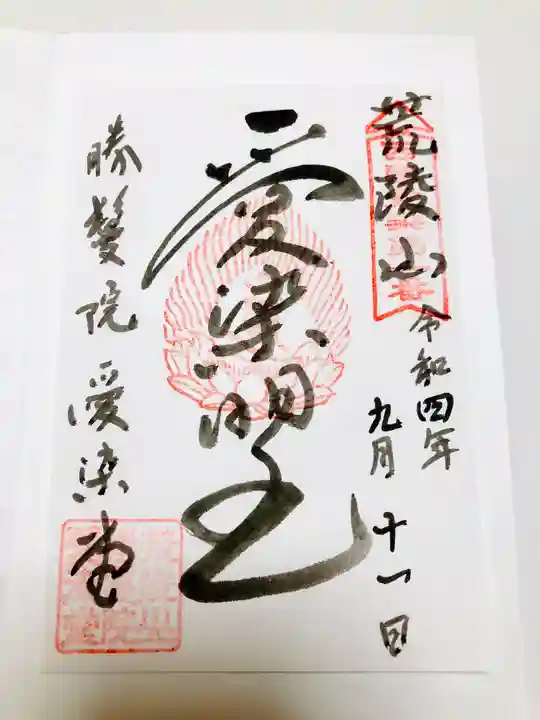 荒陵山
令和四年
九月十一日
愛染明王
勝鬘院愛染堂